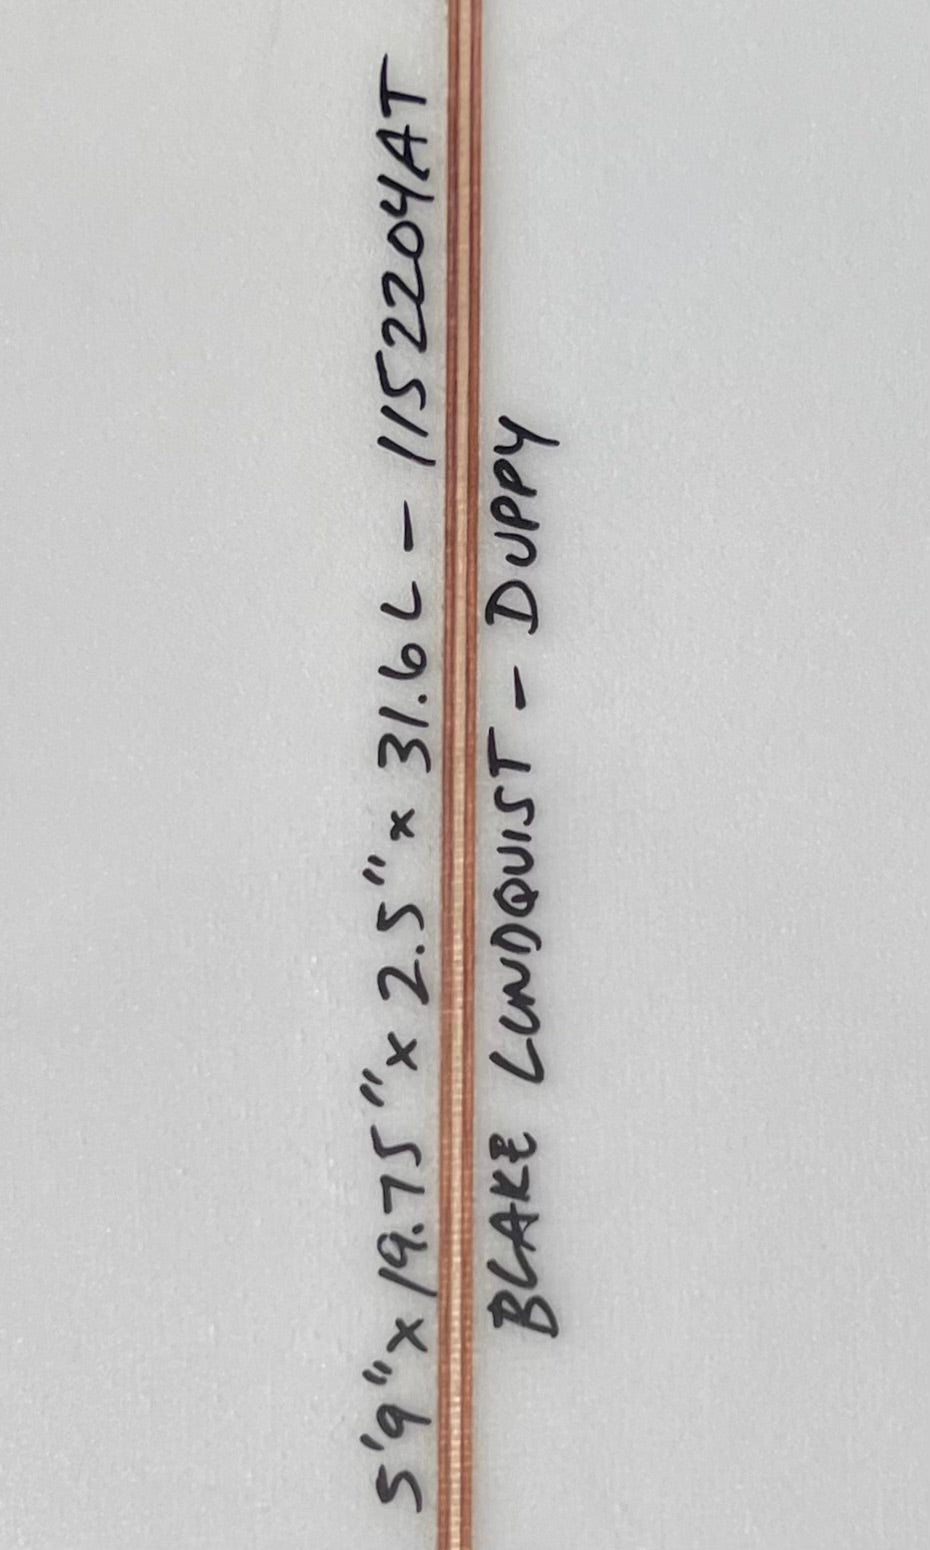 5'9" x 19.75" x 2.5" x 31.6 L - 1152204AT
BLAKE LUNDQUIST - DUPPY